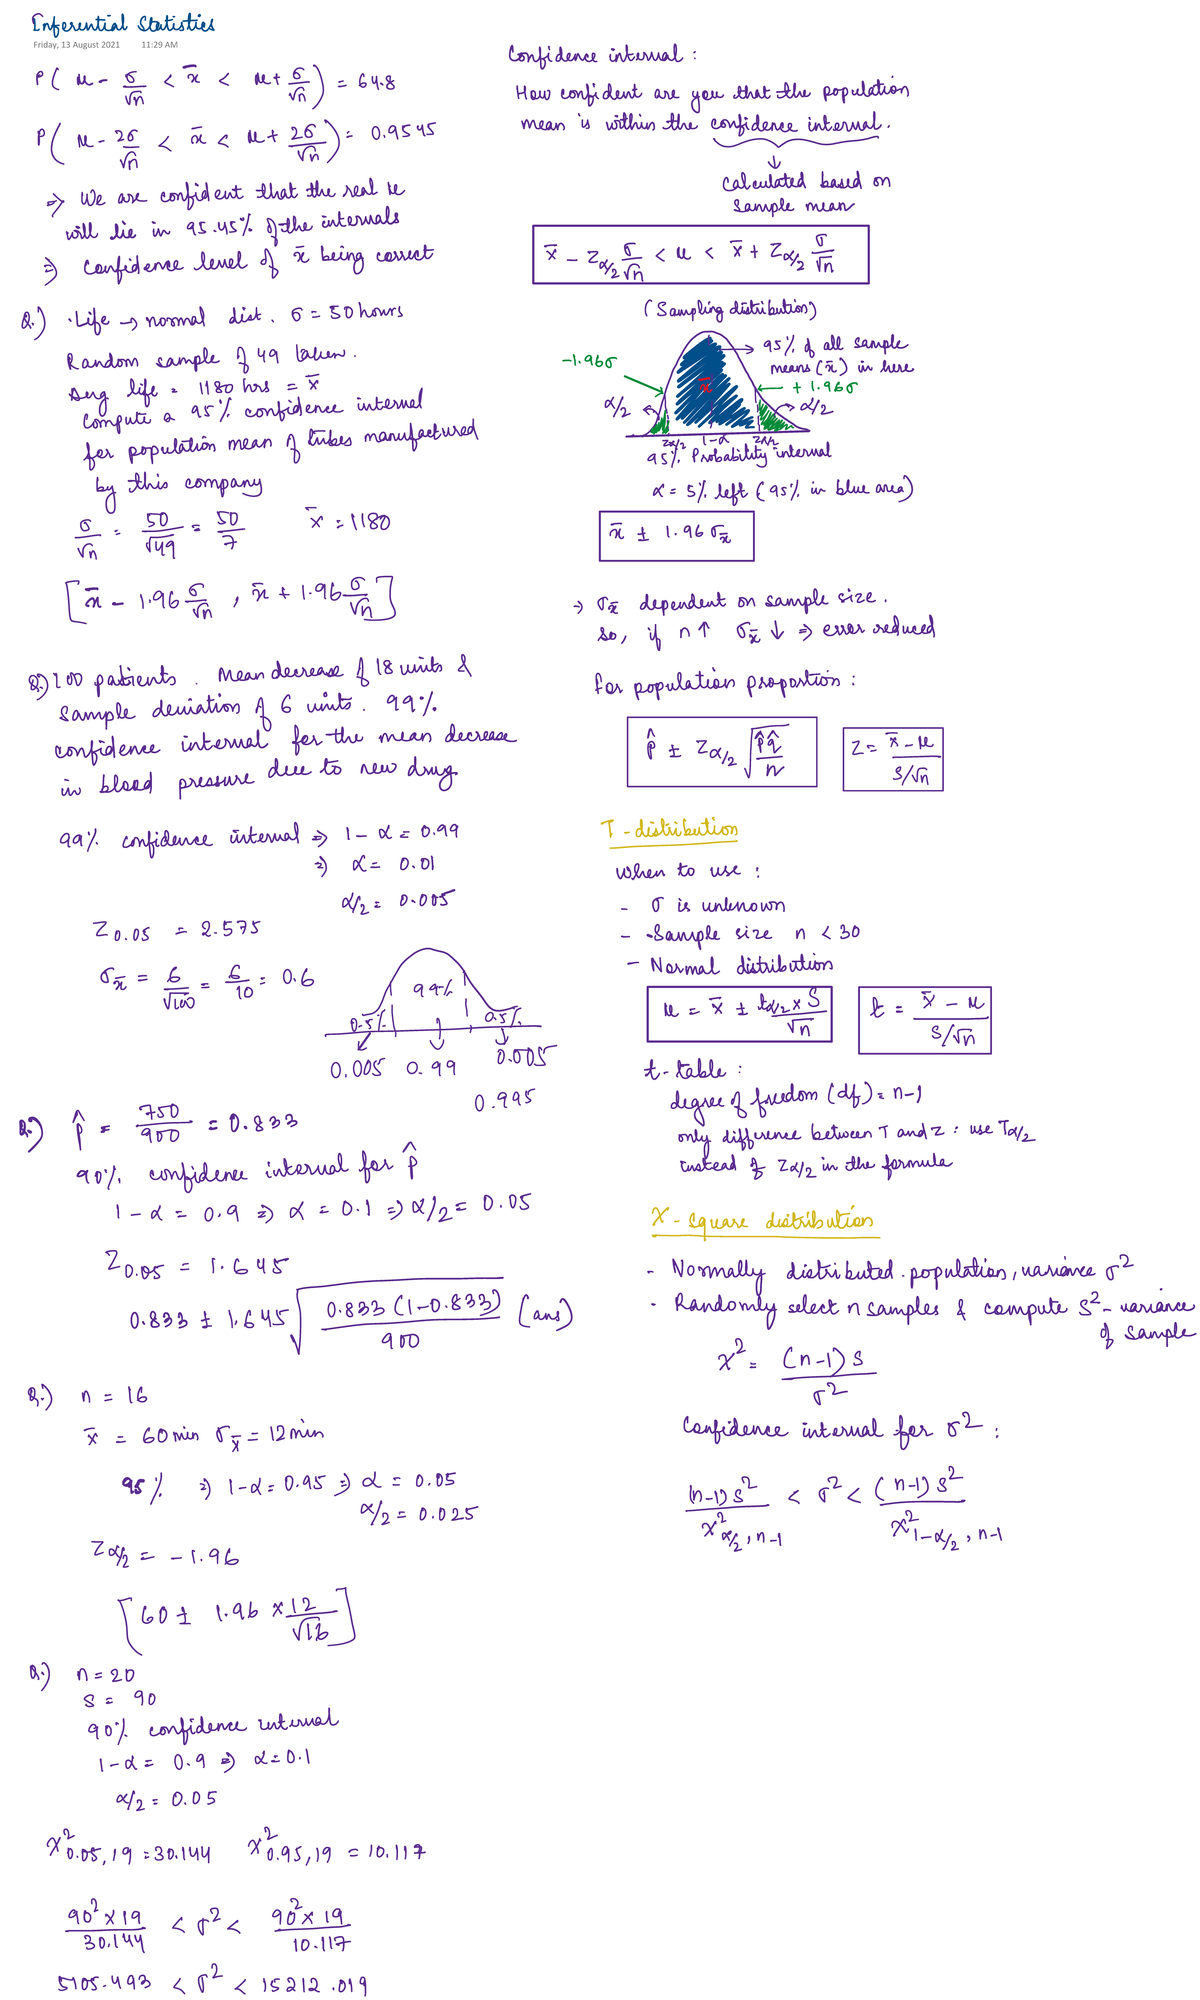 Inferential Statistics
Friday, 13 August 2021 11:29 AM
P( μ - σ/√n < x̄ < μ + σ/√n ) = 64.8
P( μ - 2σ/√n < x̄ < μ + 2σ/√n ) = 0.9545
⇒ We are confident that the real μ
will lie in 95.45% of the intervals
⇒ Confidence level of x̄ being correct
Q.) Life → normal dist. σ = 50 hours
Random sample of 49 taken.
Avg life = 1180 hrs = x̄
Compute a 95% confidence interval
for population mean of tubes manufactured
by this company
σ/√n = 50/√49 = 50/7 x̄ = 1180
[ x̄ - 1.96 σ/√n , x̄ + 1.96 σ/√n ]
Q.) 100 patients. Mean decrease of 18 units &
Sample deviation of 6 units. 99%
confidence interval for the mean decrease
in blood pressure due to new drug.
99% confidence interval ⇒ 1 - α = 0.99
⇒ α = 0.01
α/2 = 0.005
Z0.05 = 2.575
σx̄ = 6/√100 = 6/10 = 0.6
99%
0.5% 0.5%
0.005 0.99 0.005
0.995
Q.) p̂ = 750/900 = 0.833
90% confidence interval for p̂
1 - α = 0.9 ⇒ α = 0.1 ⇒ α/2 = 0.05
Z0.05 = 1.645
0.833 ± 1.645 √(0.833 (1-0.833)/900) (ans)
Q.) n = 16
x̄ = 60 min σx̄ = 12 min
95% ⇒ 1-α = 0.95 ⇒ α = 0.05
α/2 = 0.025
Zα/2 = -1.96
[ 60 ± 1.96 × 12/√16 ]
Q.) n = 20
S = 90
90% confidence interval
1-α = 0.9 ⇒ α = 0.1
α/2 = 0.05
χ²0.05, 19 = 30.144 χ²0.95, 19 = 10.117
90² × 19/30.144 < σ² < 90² × 19/10.117
5105.493 < σ² < 15212.019
Confidence interval :
How confident are you that the population
mean is within the confidence interval.
↓
Calculated based on
Sample mean
x̄ - Zα/2 σ/√n < μ < x̄ + Zα/2 σ/√n
(Sampling distribution)
-1.96σ
→ 95% of all sample
means (x̄) in here
x̄
+ 1.96σ
α/2 α/2
Zα/2 1-α Zα/2
95% Probability interval
α = 5% left (95% in blue area)
x̄ ± 1.96 σx̄
→ σx̄ dependent on sample size.
So, if n ↑ σx̄ ↓ ⇒ error reduced
For population proportion :
p̂ ± Zα/2 √(p̂q̂/n)
Z = (x̄ - μ)/(S/√n)
T - distribution
When to use :
- σ is unknown
- Sample size n < 30
- Normal distribution
μ = x̄ ± tα/2 × S/√n
t = (x̄ - μ)/(S/√n)
t-table :
degree of freedom (df) = n-1
only difference between T and Z : use Tα/2
instead of Zα/2 in the formula
X - square distribution
- Normally distributed population, variance σ²
- Randomly select n samples & compute S² - variance
of sample
χ² = (n-1) S/σ²
Confidence interval for σ² :
(n-1)S²/χ²α/2, n-1 < σ² < (n-1)S²/χ²1-α/2, n-1